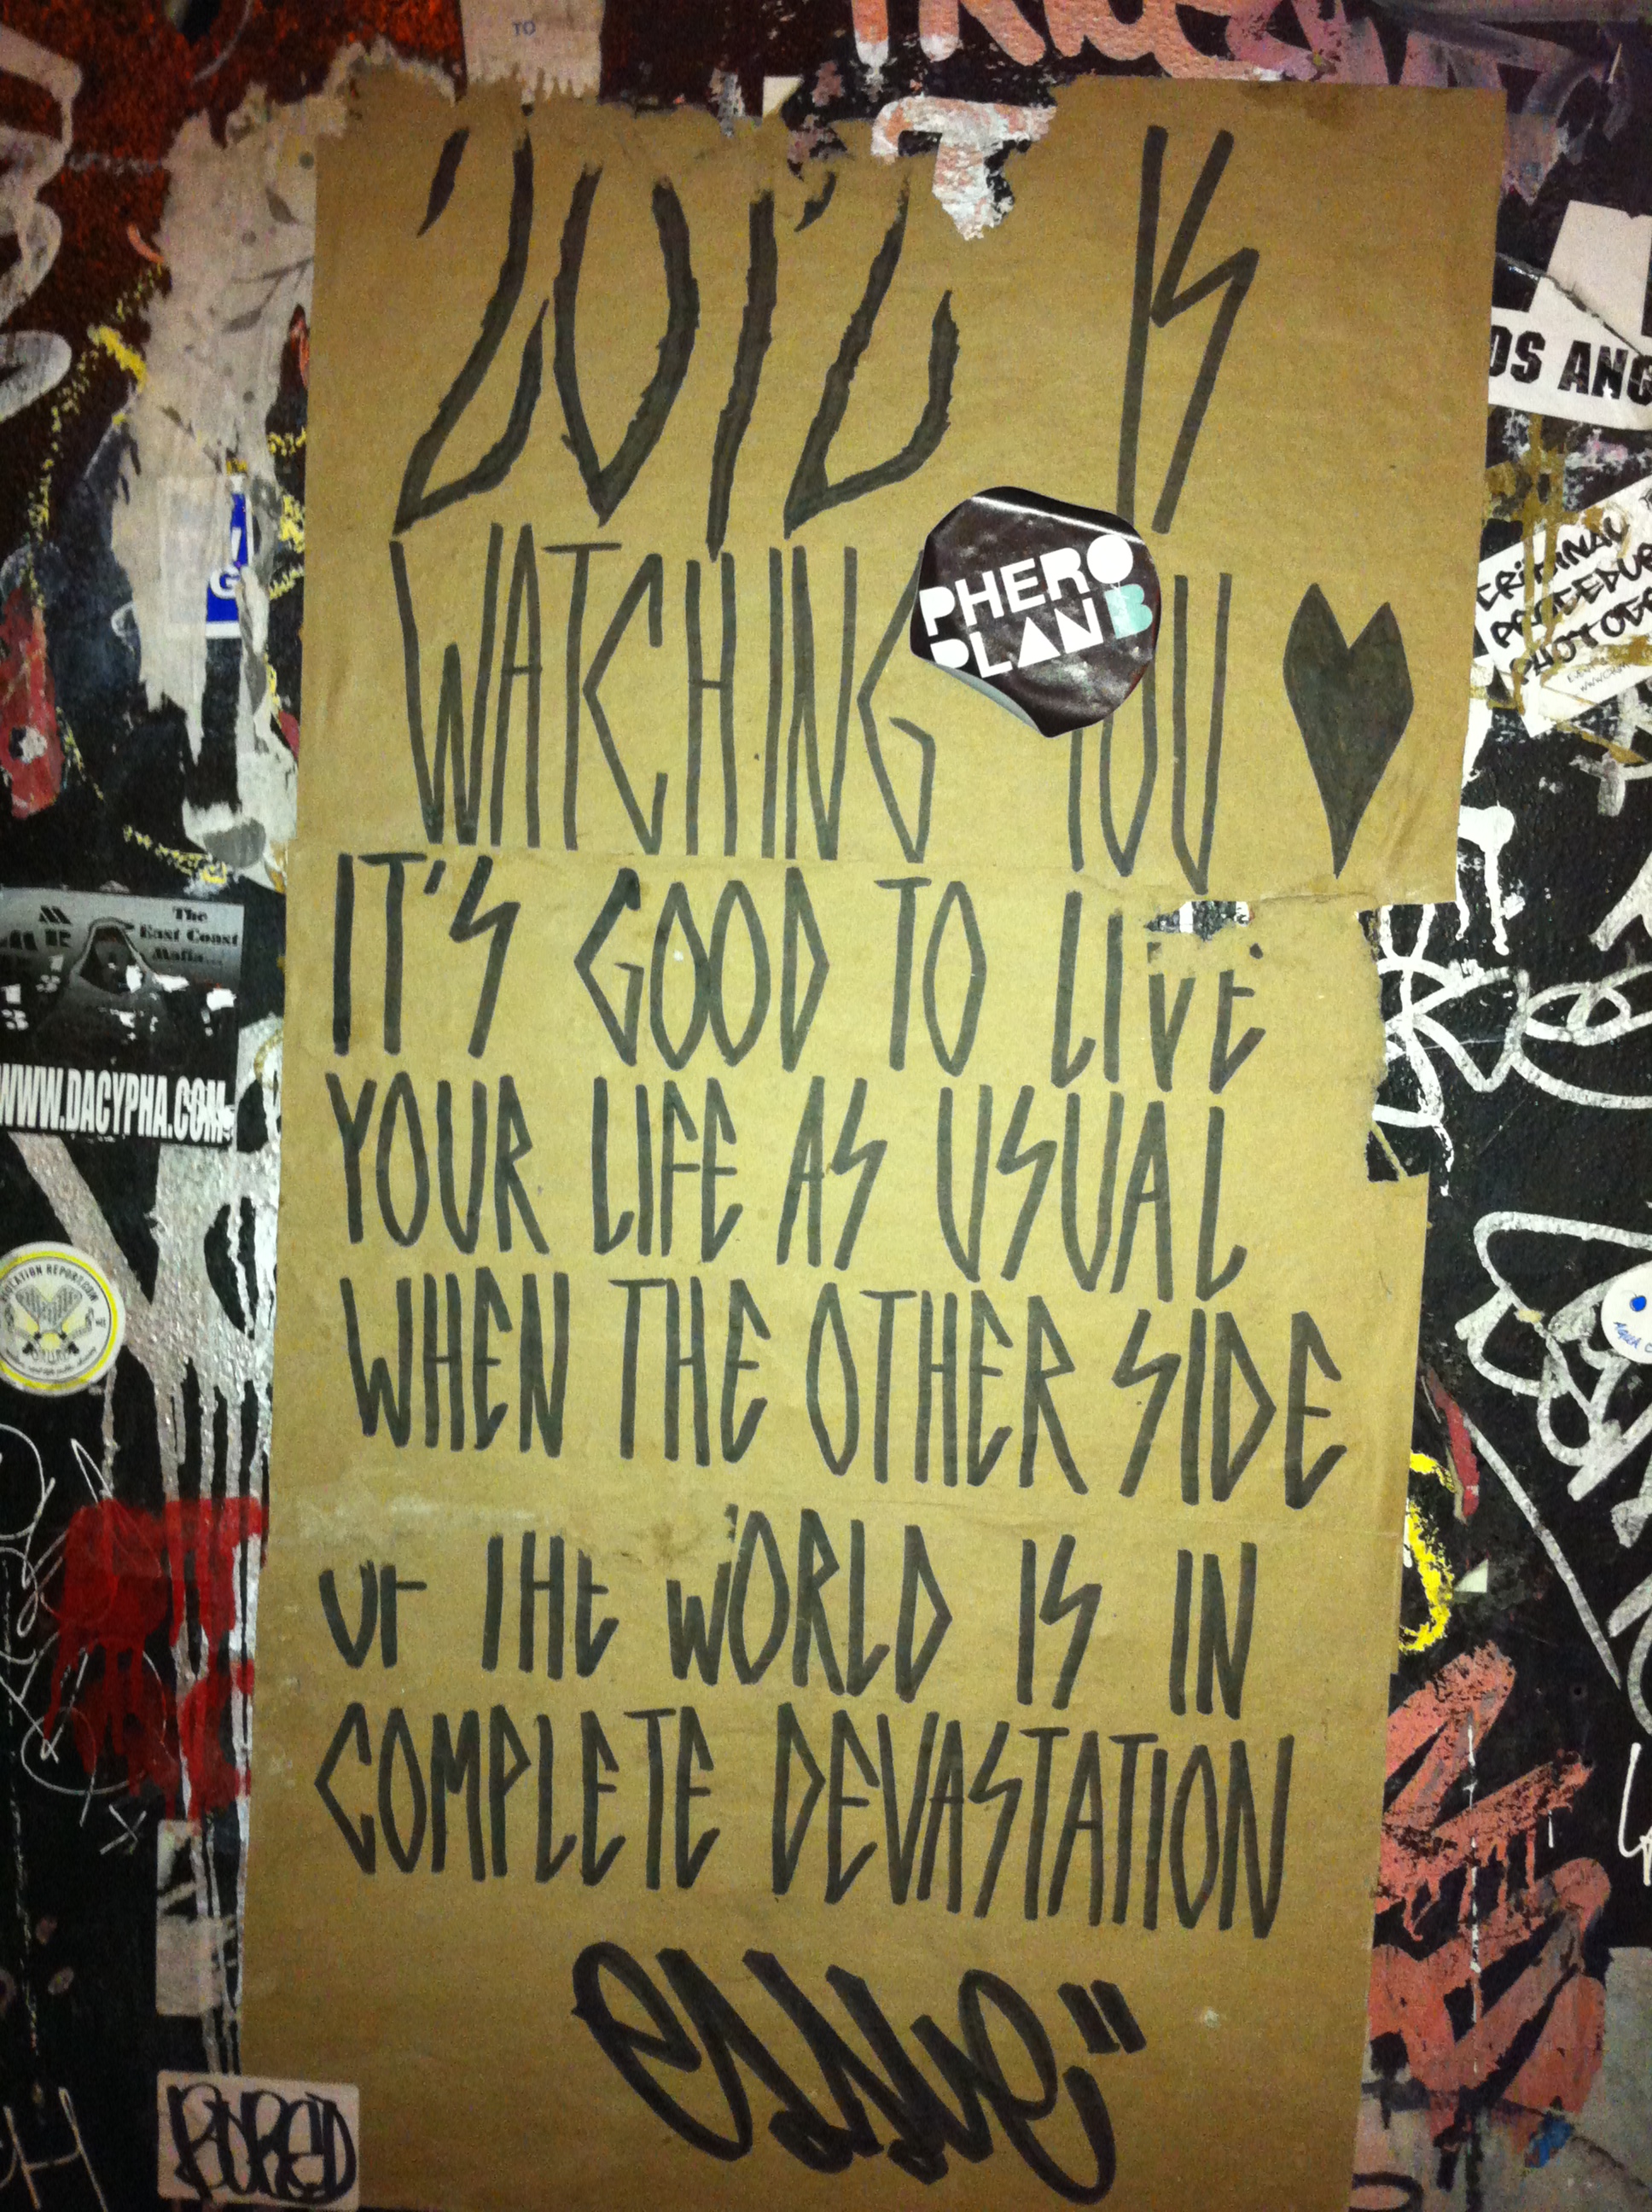 TO
2012 IS
OS ANG
WATCHING YOU ♥
PHERO
PLANB
CRIMINAL
The
East Coast
Mafia...
WWW.DACYPHA.COM
IT'S GOOD TO LIVE
YOUR LIFE AS USUAL
WHEN THE OTHER SIDE
OF THE WORLD IS IN
COMPLETE DEVASTATION
BORED